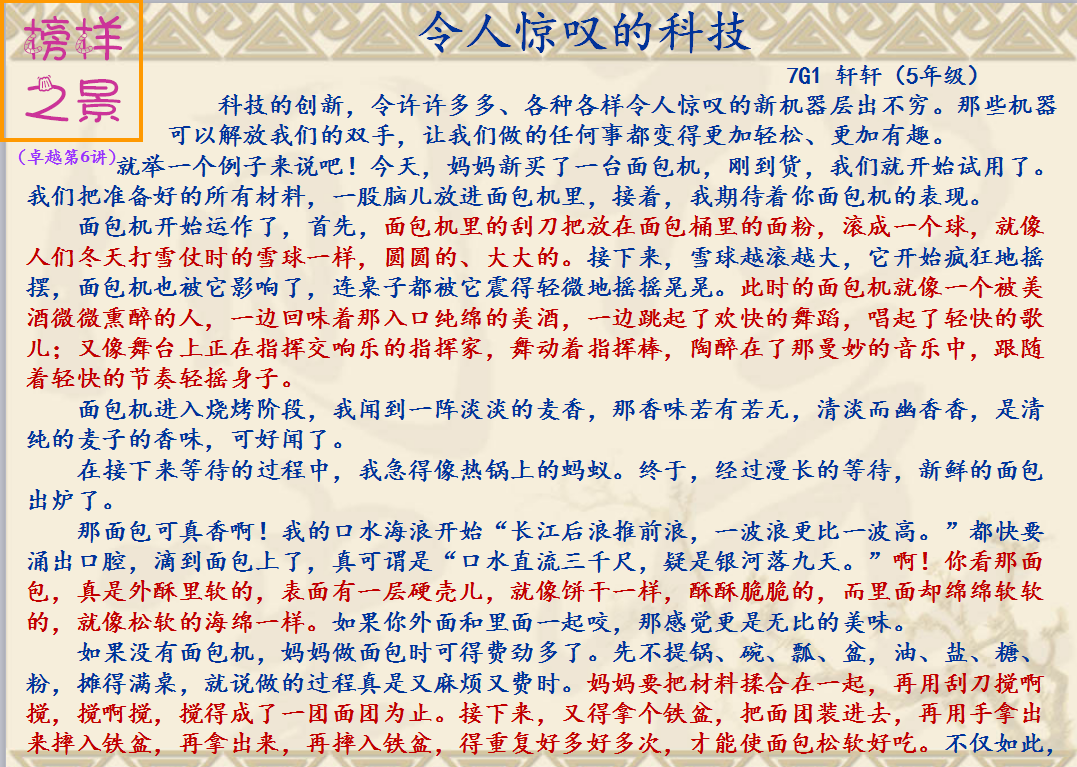 榜样
之景
令人惊叹的科技
7G1 轩轩（5年级）
（卓越第6讲）
科技的创新，令许许多多、各种各样令人惊叹的新机器层出不穷。那些机器
可以解放我们的双手，让我们做的任何事都变得更加轻松、更加有趣。
就举一个例子来说吧！今天，妈妈新买了一台面包机，刚到货，我们就开始试用了。
我们把准备好的所有材料，一股脑儿放进面包机里，接着，我期待着你面包机的表现。
面包机开始运作了，首先，面包机里的刮刀把放在面包桶里的面粉，滚成一个球，就像
人们冬天打雪仗时的雪球一样，圆圆的、大大的。接下来，雪球越滚越大，它开始疯狂地摇
摆，面包机也被它影响了，连桌子都被它震得轻微地摇摇晃晃。此时的面包机就像一个被美
酒微微熏醉的人，一边回味着那入口纯绵的美酒，一边跳起了欢快的舞蹈，唱起了轻快的歌
儿；又像舞台上正在指挥交响乐的指挥家，舞动着指挥棒，陶醉在了那曼妙的音乐中，跟随
着轻快的节奏轻摇身子。
面包机进入烧烤阶段，我闻到一阵淡淡的麦香，那香味若有若无，清淡而幽香香，是清
纯的麦子的香味，可好闻了。
在接下来等待的过程中，我急得像热锅上的蚂蚁。终于，经过漫长的等待，新鲜的面包
出炉了。
那面包可真香啊！我的口水海浪开始“长江后浪推前浪，一波浪更比一波高。”都快要
涌出口腔，滴到面包上了，真可谓是“口水直流三千尺，疑是银河落九天。”啊！你看那面
包，真是外酥里软的，表面有一层硬壳儿，就像饼干一样，酥酥脆脆的，而里面却绵绵软软
的，就像松软的海绵一样。如果你外面和里面一起咬，那感觉更是无比的美味。
如果没有面包机，妈妈做面包时可得费劲多了。先不提锅、碗、瓢、盆，油、盐、糖、
粉，摊得满桌，就说做的过程真是又麻烦又费时。妈妈要把材料揉合在一起，再用刮刀搅啊
搅，搅啊搅，搅得成了一团面团为止。接下来，又得拿个铁盆，把面团装进去，再用手拿出
来摔入铁盆，再拿出来，再摔入铁盆，得重复好多好多次，才能使面包松软好吃。不仅如此，